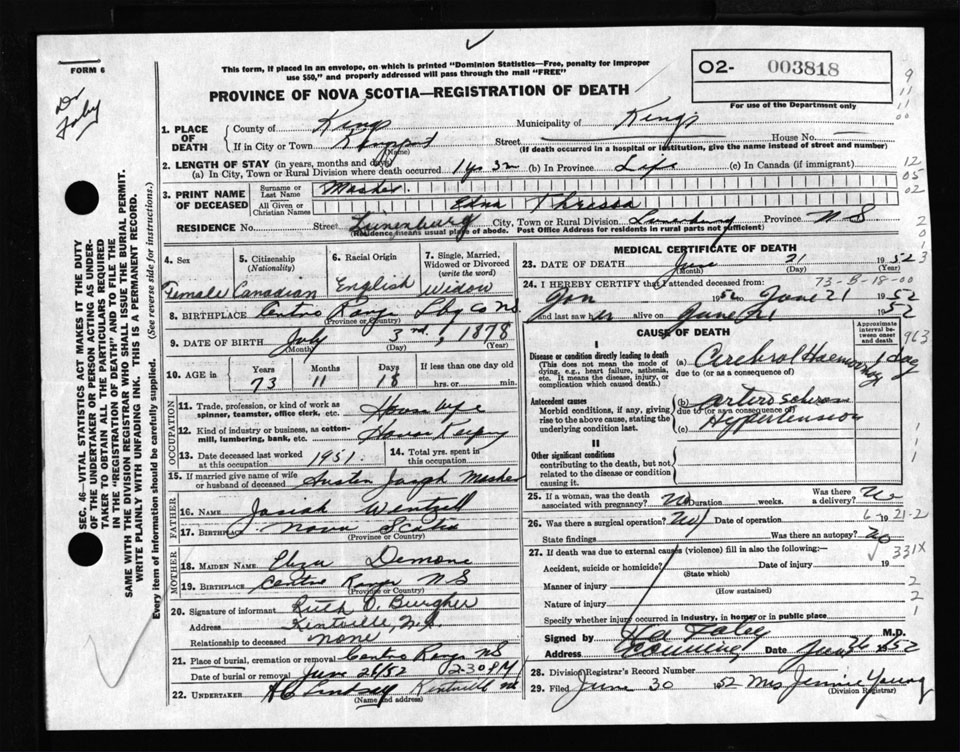 FORM 6
This form, if placed in an envelope, on which is printed "Dominion Statistics—Free, penalty for improper
use $50," and properly addressed will pass through the mail "FREE"
02- 003818
For use of the Department only
PROVINCE OF NOVA SCOTIA—REGISTRATION OF DEATH
Dr
Foley
SEC. 46—VITAL STATISTICS ACT MAKES IT THE DUTY
OF THE UNDERTAKER OR PERSON ACTING AS UNDER-
TAKER TO OBTAIN ALL THE PARTICULARS REQUIRED
IN THE "REGISTRATION OF DEATH" AND TO FILE THE
SAME WITH THE DIVISION REGISTRAR WHO SHALL ISSUE THE BURIAL PERMIT.
WRITE PLAINLY WITH UNFADING INK. THIS IS A PERMANENT RECORD.
Every item of information should be carefully supplied. (See reverse side for instructions.)
1. PLACE OF DEATH
County of Kings Municipality of Kings
If in City or Town (Name) Street House No. —
(If death occurred in a hospital or institution, give the name instead of street and number)
2. LENGTH OF STAY (in years, months and days)
(a) In City, Town or Rural Division where death occurred 1 y 3 m (b) In Province Life (c) In Canada (if immigrant)
3. PRINT NAME OF DECEASED
Surname or Last Name Mosher
All Given or Christian Names Edna Thressa
RESIDENCE No. Street Lunenburg City, Town or Rural Division Lunenburg Province N S
(Residence means usual place of abode. Post Office Address for residents in rural parts not sufficient)
4. Sex Female
5. Citizenship (Nationality) Canadian
6. Racial Origin English
7. Single, Married, Widowed or Divorced (write the word) Widow
8. BIRTHPLACE Centre Range Lbg Co NS
(Province or Country)
9. DATE OF BIRTH July 3rd, 1878
(Month) (Day) (Year)
10. AGE in Years Months Days If less than one day old
73 11 18 hrs. or min.
OCCUPATION
11. Trade, profession, or kind of work as spinner, teamster, office clerk, etc. House wife
12. Kind of industry or business, as cotton-mill, lumbering, bank, etc. House Keeping
13. Date deceased last worked at this occupation 1951.
14. Total yrs. spent in this occupation
15. If married give name of wife or husband of deceased Austen Joseph Mosher
FATHER
16. NAME Josiah Wentzell
17. BIRTHPLACE Nova Scotia
(Province or Country)
MOTHER
18. MAIDEN NAME Eliza Demone
19. BIRTHPLACE Centre Range N S
(Province or Country)
20. Signature of informant Ruth O. Burgher
Address Kentville, N.S.
Relationship to deceased none
21. Place of burial, cremation or removal Centre Range NS
Date of burial or removal June 24/52
22. UNDERTAKER Lindsay Kentville NS
(Name and address)
MEDICAL CERTIFICATE OF DEATH
23. DATE OF DEATH June 21 1952
(Month) (Day) (Year)
73-B-18-00
24. I HEREBY CERTIFY that I attended deceased from:
Jan 1952 to June 21 1952
and last saw her alive on June 21 1952
CAUSE OF DEATH
Approximate interval between onset and death
I
Disease or condition directly leading to death
(This does not mean the mode of dying, e.g., heart failure, asthenia, etc. It means the disease, injury, or complication which caused death.)
(a) Cerebral Haemorrhage 1 day
due to (or as a consequence of)
Antecedent causes
Morbid conditions, if any, giving rise to the above cause, stating the underlying condition last.
(b) Arterio Sclerosis
due to (or as a consequence of)
(c) Hypertension
II
Other significant conditions
contributing to the death, but not related to the disease or condition causing it.
25. If a woman, was the death associated with pregnancy? No Duration weeks. Was there a delivery? No
26. Was there a surgical operation? No Date of operation 19
State findings Was there an autopsy? No
27. If death was due to external causes (violence) fill in also the following:—
331X
Accident, suicide or homicide? Date of injury 19
(State which)
Manner of injury
(How sustained)
Nature of injury
Specify whether injury occurred in industry, in home, or in public place
Signed by Foley M.D.
Address Canning Date 1952
28. Division Registrar's Record Number
29. Filed June 30 1952 Mrs Jennie Young
(Division Registrar)